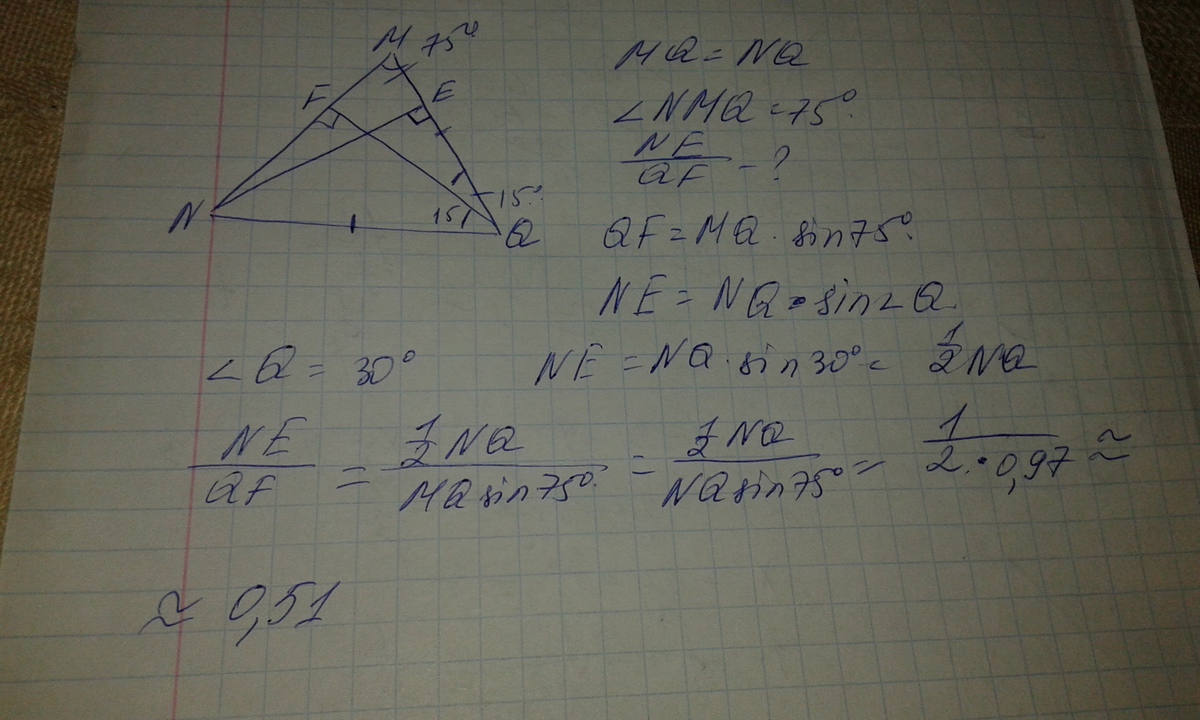 M 75°
F E
N 15 15° Q
MQ = NQ
∠NMQ = 75°
NE/QF - ?
QF = MQ · sin75°.
NE = NQ · sin∠Q.
∠Q = 30° NE = NQ · sin30° = 1/2 NQ
NE/QF = 1/2 NQ / MQ sin75° = 1/2 NQ / NQ sin75° = 1 / 2 · 0,97 ≈
≈ 0,51